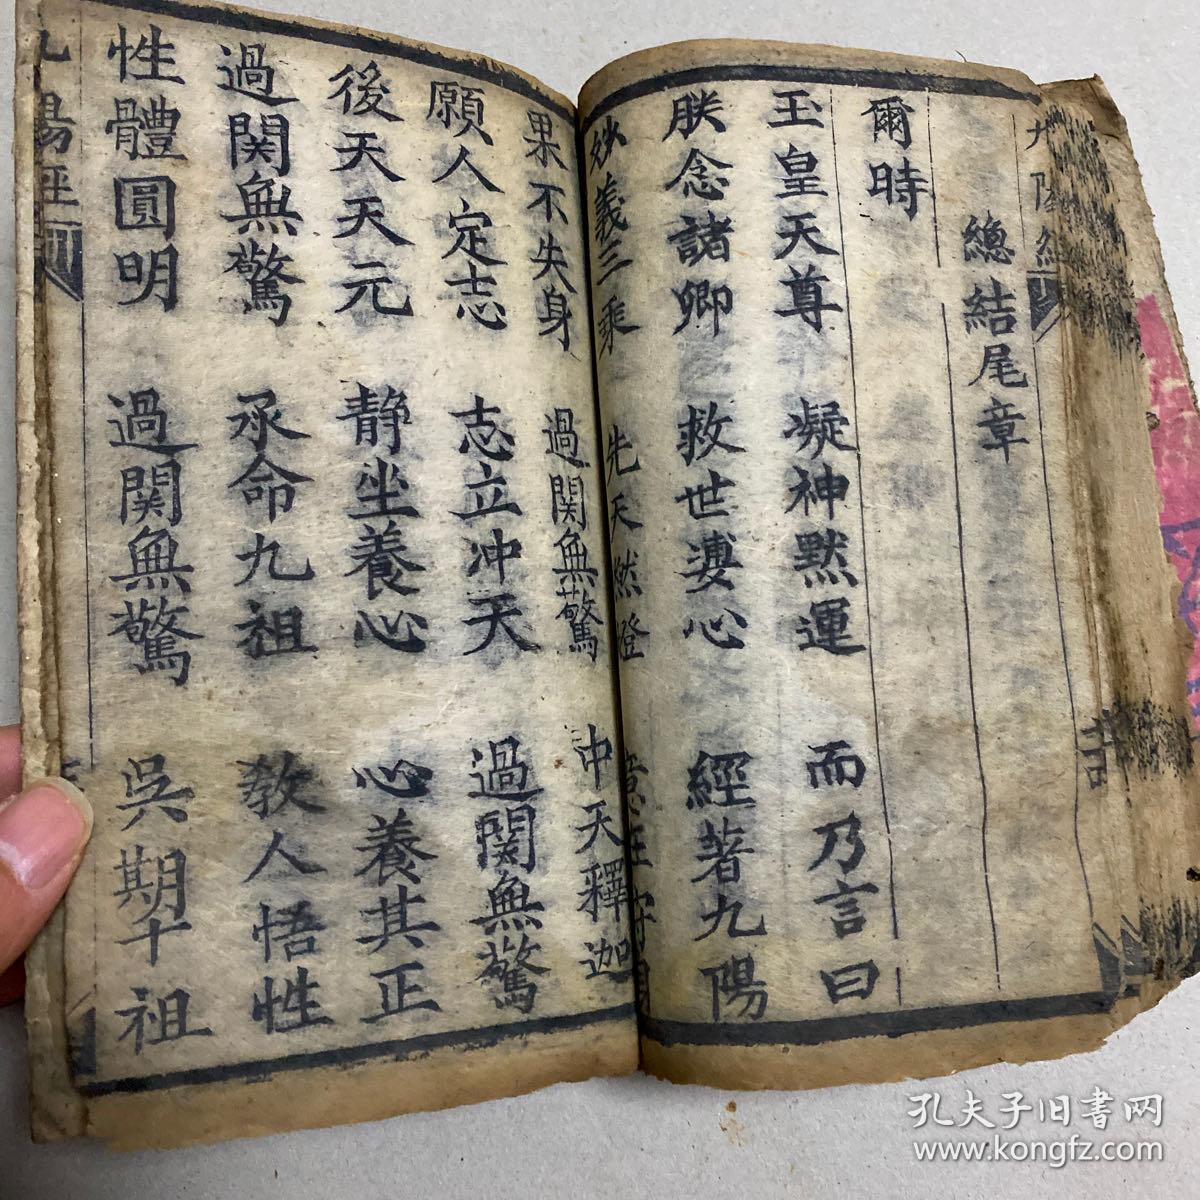 九陽經
總結尾章
爾時
玉皇天尊 凝神默運 而乃言曰
朕念諸卿 救世婆心 經著九陽
妙義三乘 先天燃燈
果不失身 過関無驚 中天釋迦
願人定志 志立冲天 過関無驚
後天天元 静坐養心 心養其正
過関無驚 承命九祖 教人悟性
性體圓明 過関無驚 吳期千祖
九陽經
孔夫子旧书网
www.kongfz.com